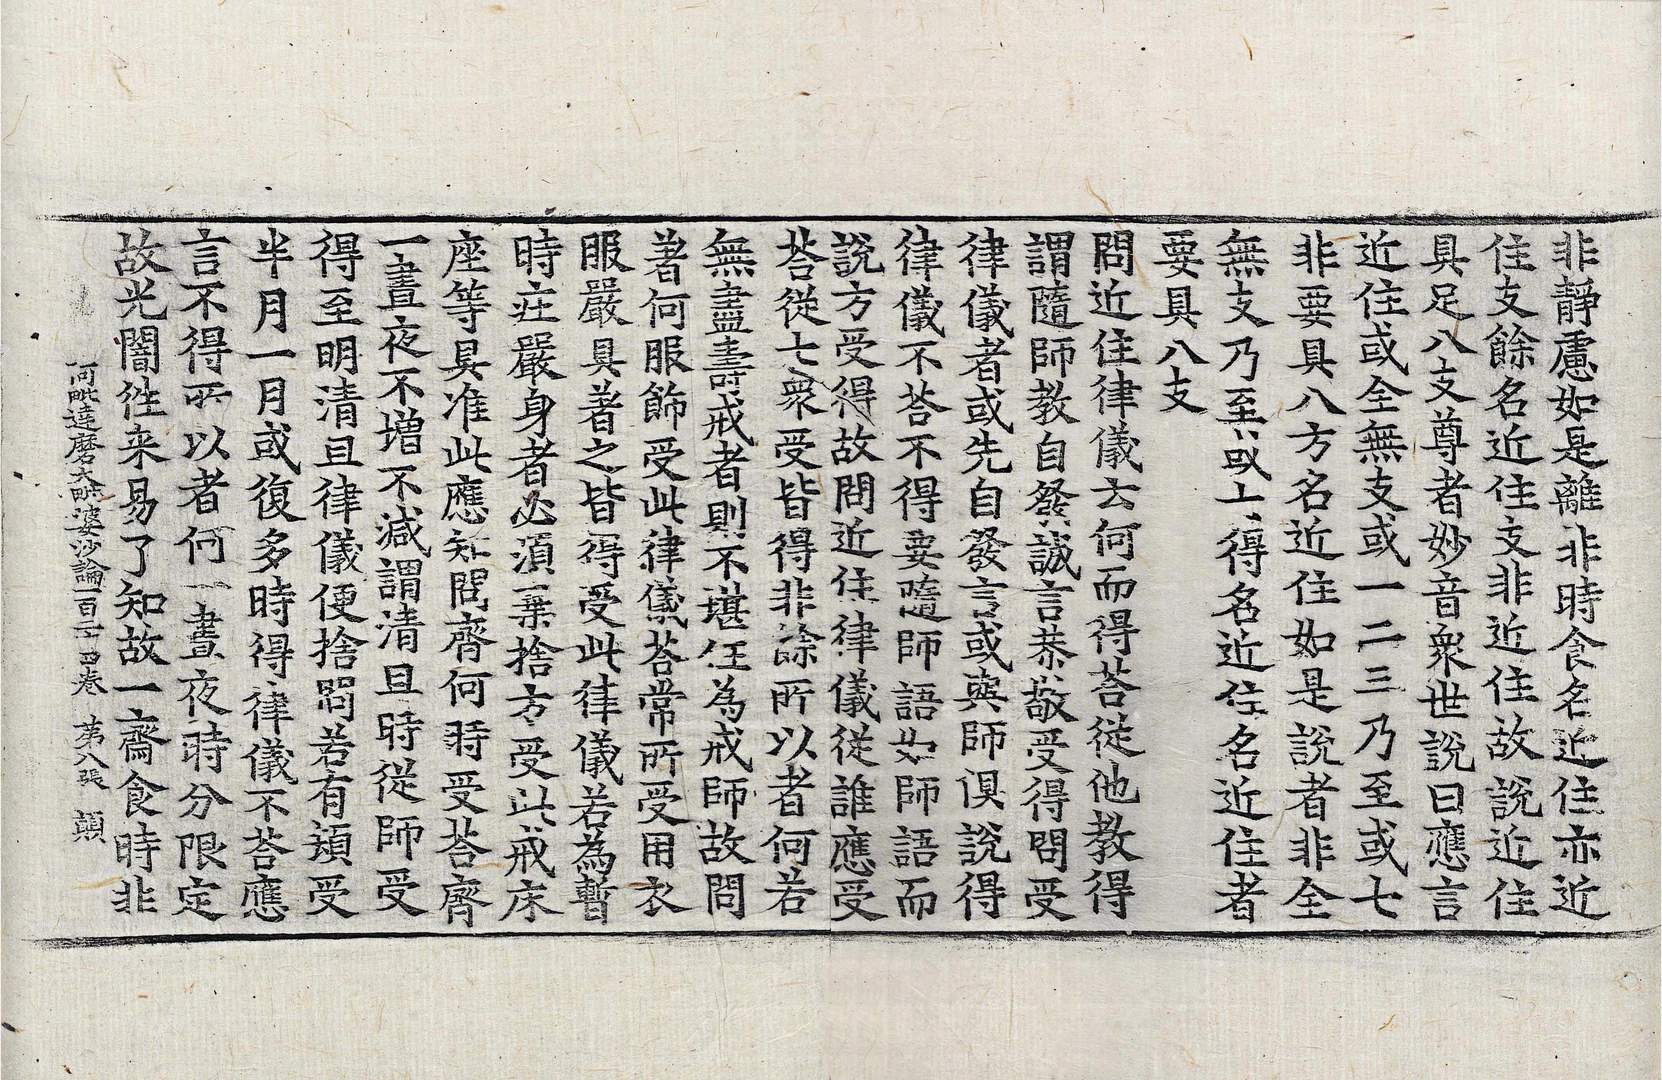 非靜慮如是離非時食名近住亦近
住支餘名近住支非近住故說近住
具足八支尊者妙音衆世說曰應言
近住或全無支或一二三乃至或七
非要具八方名近住如是說者非全
無支乃至或七得名近住名近住者
要具八支
問近住律儀云何而得荅從他教得
謂隨師教自發誠言恭敬受得問受
律儀者或先自發言或與師俱說得
律儀不荅不得要隨師語如師語而
說方受得故問近住律儀從誰應受
荅從七衆受皆得非餘所以者何若
無盡壽戒者則不堪任為戒師故問
著何服飾受此律儀荅常所受用衣
服嚴具著之皆得受此律儀若為暫
時莊嚴身者必須棄捨方受此戒床
座等具准此應知問齊何時受荅齊
一晝夜不增不減謂清旦時從師受
得至明清旦律儀便捨問若有頓受
半月一月或復多時得律儀不荅應
言不得所以者何一晝夜時分限定
故光闇徃来易了知故一齋食時非
阿毗達磨大毗婆沙論一百二十四卷　第八張　顛